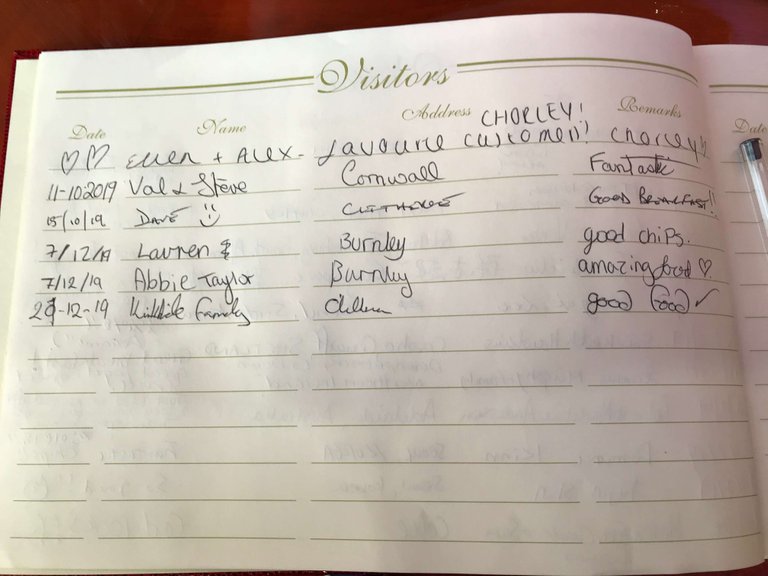 Visitors
Date Name Address Remarks
CHORLEY!
♡♡ Ellen + Alex - favourite customers! Chorley
11-10-2019 Val & Steve Cornwall Fantastic
15/10/19 DAVE CLITHEROE GOOD BREAKFAST!!
7/12/19 Lauren Burnley good chips.
7/12/19 Abbie Taylor Burnley amazing food ♡
-12-19 Family good food ✓
Date